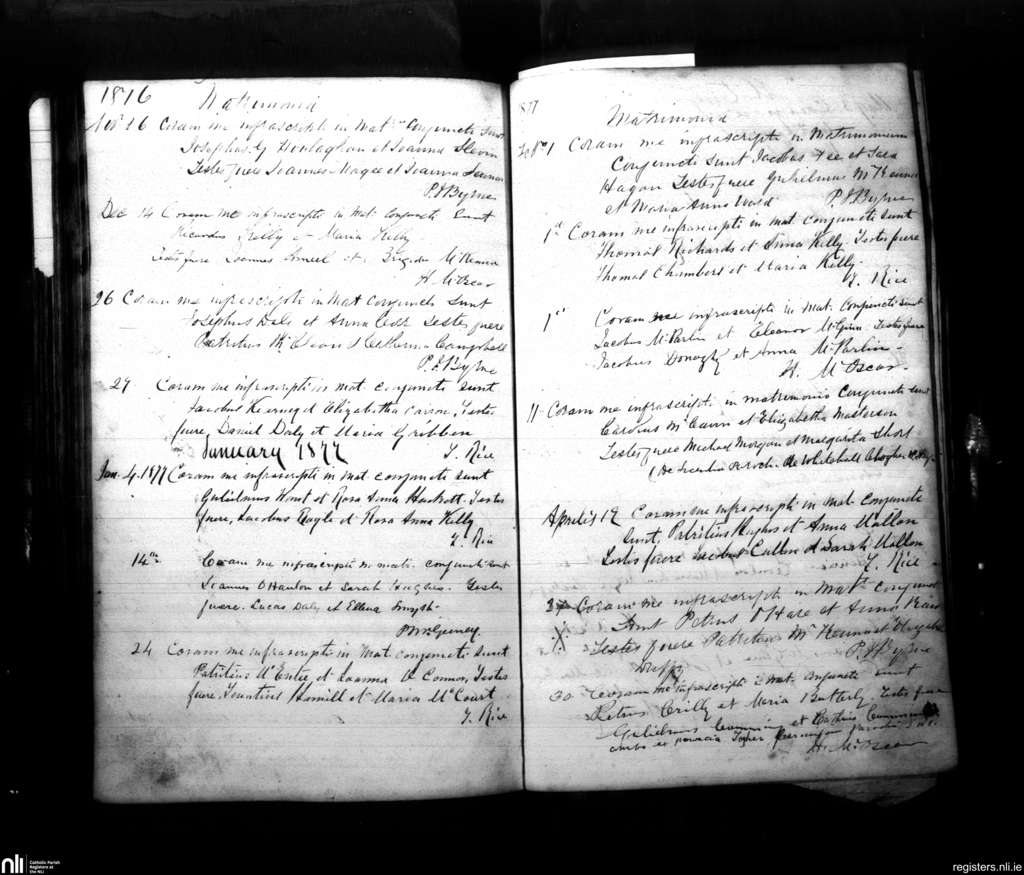 1876
Matrimonia
Nov 16 Coram me infrascripto in Mat Conjuncti Sunt
Josephus Houlaghan et Joanna Slevin
Testes fuere Joannes Magee et Joanna
P.J Byrne
Dec 14 Coram me infrascripto in Mat. Conjuncti Sunt
Ricardus Reilly et Maria Kelly
Testes fuere Joannes et Brigida McKenna
H. McOscar
26 Coram me infrascripto in Mat Conjuncti Sunt
Josephus Daly et Anna Testes fuere
Patritius et Catherina Campbell
P.J Byrne
27 Coram me infrascripto in mat conjuncti sunt
Jacobus et Elizabetha Testes
fuere, Daniel Daly et Maria Gribben
T. Rice
January 1877
Jan. 4. 1877 Coram me infrascripto in mat conjuncti sunt
Gulielmus et Rosa Anna Hackett. Testes
fuere, Jacobus et Rosa Anna Kelly
T. Rice
14th Coram me infrascripto in mat. conjuncti sunt
Joannes O'Hanlon et Sarah Hughes. Testes
fuere. Lucas Daly et Ellena Smyth.
24 Coram me infrascripto in Mat conjuncti Sunt
Patritius McEntee et Joanna O Connor, Testes
fuere, Hamill et Maria McCourt
T. Rice
1877
Matrimonia
Feb 1 Coram me infrascripto in Matrimonium
Conjuncti Sunt Jacobus Fee et Sara
Hagan Testes fuere Gulielmus McKenna
et Maria Anna Ward
P.J Byrne
1st Coram me infrascripto in mat conjuncti sunt
Thomas Richards et Anna Kelly. Testes fuere
Thomas Chambers et Maria Kelly.
T. Rice
1st Coram me infrascripto in Mat. Conjuncti sunt
Jacobus McParlin et Eleanor McGinn. Testes fuere
Jacobus Donaghy et Anna McParlin.
H. McOscar.
11 Coram me infrascripto in matrimonio Conjuncti sunt
Carolus McCann et Elizabetha Masterson
Testes fuere Michael Morgan et Margarita Short
Aprilis 17 Coram me infrascripto in mat conjuncti
sunt, Patritius Hughes et Anna Mallon
Testes fuere Jacobus Cullen et Sarah Mallon
T. Rice
Coram me infrascripto in Mat conjuncti
Sunt Petrus O'Hare et Anna
Testes fuere Patritius McKenna et
Duffy
P.J Byrne
30 Coram me infrascripto in mat. conjuncti sunt
Petrus Crilly et Maria Butterly Testes fuere
Gulielmus et
H. McOscar
nli
Catholic Parish
Registers at
the NLI
registers.nli.ie